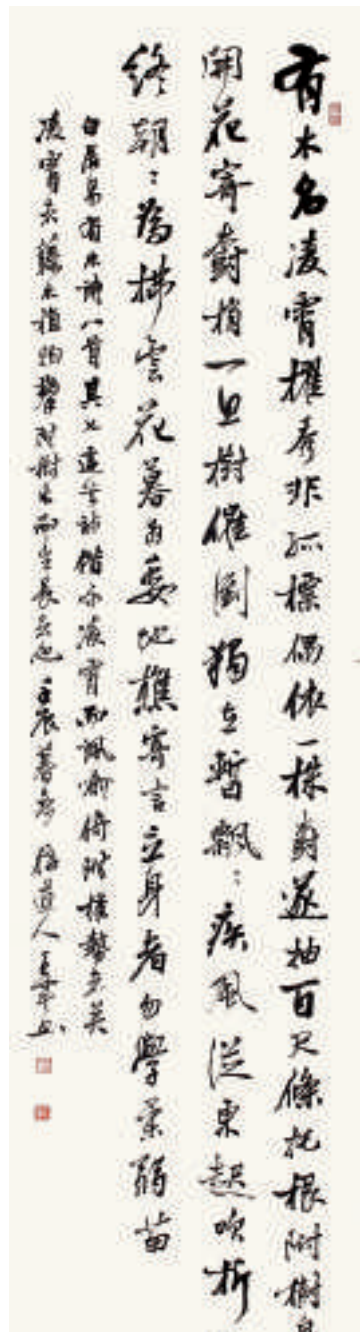 有木名凌霄擢秀非孤標偶依一株樹遂抽百尺條托根附樹
開花寄樹梢一旦樹摧倒獨立暫飄〻疾風從東起吹折
終朝〻為拂雲花暮為委地樵寄言立身者勿學柔弱苗
白居易有木詩八首其七這首詩借凌霄而諷喻倚附權勢之
凌霄藤木植物攀附樹木而生長者也壬辰暮秋道人書